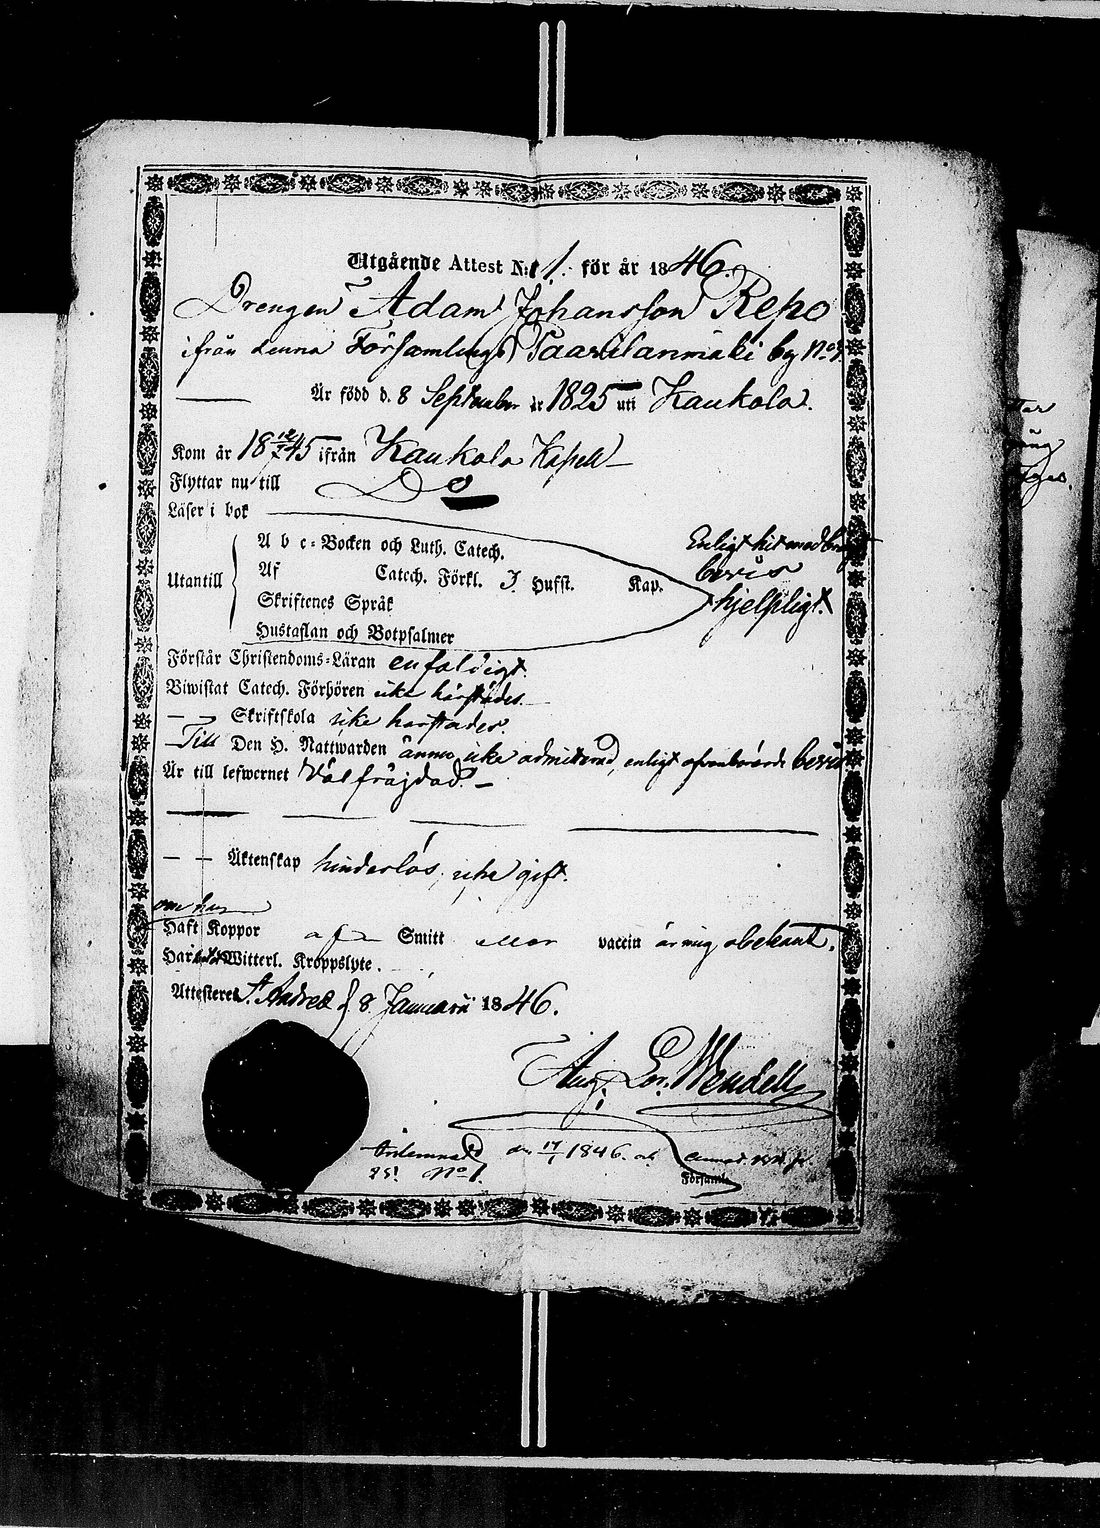 Utgående Attest N:o 1. för år 1846.
Drengen Adam Johansson Repo
ifrån denna Församlings Paaskelanmäki by No
Är född d. 8 September år 1825 uti Kaukola.
Kom år 18 45 ifrån Kaukola Kapell
Flyttar nu till Do
Läser i bok
A b c-Bocken och Luth. Catech.
Enligt hit medbragt
bevis
hjelpligt
Utantill
Af Catech. Förkl. J. Hufst. Kap.
Skriftenes Språk
Hustaflan och Botpsalmer
Förstår Christendoms-Läran enfaldigt.
Biwistat Catech. Förhören icke härstädes.
— Skriftskola icke härstädes.
Till Den H. Nattwarden ännu icke admitterad, enligt ofvanberörde bevis
Är till lefwernet Välfräjdad. —
— — Äktenskap hinderlös, icke gift.
om han
Haft Koppor af Smitt eller vaccin är mig obekant.
Har Witterl. Kroppslyte.
Attesteres St Andreæ d 8 Januarii 1846.
Aug. Lor. Wendell
den 17/1 1846.
No 1.
Församl.